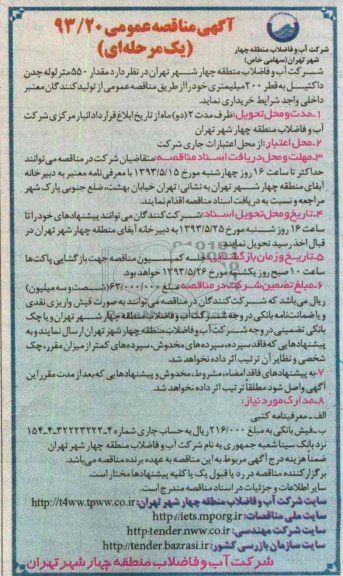 آگهی مناقصه عمومی ۹۳/۲۰
(یک مرحله‌ای)
شرکت آب و فاضلاب منطقه چهار
شهر تهران (سهامی خاص)
شرکت آب و فاضلاب منطقه چهار شهر تهران در نظر دارد مقدار ۵۵۰ متر لوله چدن
داکتیل به قطر ۲۰۰ میلیمتری خود را از طریق مناقصه عمومی از تولیدکنندگان معتبر
داخلی واجد شرایط خریداری نماید.
۱- مدت و محل تحویل: ظرف مدت ۲ (دو) ماه از تاریخ ابلاغ قرارداد انبار مرکزی شرکت
آب و فاضلاب منطقه چهار شهر تهران
۲- محل اعتبار: از محل اعتبارات جاری شرکت
۳- مهلت و محل دریافت اسناد مناقصه: متقاضیان شرکت در مناقصه می‌توانند
حداکثر تا ساعت ۱۶ روز چهارشنبه مورخ ۱۳۹۳/۵/۱۵ با معرفی نامه معتبر به دبیر خانه
آبفای منطقه چهار شهر تهران به نشانی: تهران خیابان بهشت، ضلع جنوبی پارک شهر
مراجعه و نسبت به دریافت اسناد مناقصه اقدام نمایند.
۴- تاریخ و محل تحویل اسناد: شرکت کنندگان می‌توانند پیشنهادهای خود را تا
ساعت ۱۶ روز شنبه مورخ ۱۳۹۳/۵/۲۵ به دبیر خانه آبفای منطقه چهار شهر تهران در
قبال اخذ رسید تحویل نمایند.
۵- تاریخ و زمان بازگشایی: جلسه کمیسیون مناقصه جهت بازگشایی پاکت‌ها
ساعت ۱۰ صبح روز یکشنبه مورخ ۱۳۹۳/۵/۲۶ خواهد بود.
۶- مبلغ تضمین شرکت در مناقصه: مبلغ ۶۳/۰۰۰/۰۰۰ (شصت و سه میلیون)
ریال می‌باشد که شرکت کنندگان در مناقصه می‌توانند به صورت فیش واریزی نقدی
و یا ضمانتنامه بانکی در وجه شرکت آب و فاضلاب منطقه چهار شهر تهران و یا چک
بانکی تضمینی در وجه شرکت آب و فاضلاب منطقه چهار شهر تهران ارسال نمایند و به
پیشنهادهایی که فاقد سپرده، سپرده‌های مخدوش، سپرده‌های کمتر از میزان مقرر، چک
شخصی و نظایر آن ترتیب اثر داده نخواهد شد.
۷- به پیشنهادهای فاقد امضاء، مشروط، مخدوش و پیشنهادهایی که بعد از مدت مقرر این
آگهی واصل شود مطلقاً ترتیب اثر داده نخواهد شد.
۸- مدارک مورد نیاز:
الف - معرفینامه کتبی
ب- فیش بانکی به مبلغ ۲۱۶/۰۰۰ ریال به حساب جاری شماره
نزد بانک سینا شعبه جمهوری به نام شرکت آب و فاضلاب منطقه چهار شهر تهران
ضمناً هزینه درج آگهی مربوط به این مناقصه به عهده برنده مناقصه می‌باشد.
برگزار کننده مناقصه در رد یا قبول یک یا کلیه پیشنهادها مختار است.
سایر اطلاعات و جزئیات در اسناد مناقصه مندرج است.
سایت شرکت آب و فاضلاب منطقه چهار شهر تهران: http://t4ww.tpww.co.ir
سایت ملی مناقصات: http://iets.mporg.ir
سایت شرکت مهندسی: http:tender.nww.co.ir
سایت سازمان بازرسی کشور: http://tender.bazrasi.ir
شرکت آب و فاضلاب منطقه چهار شهر تهران